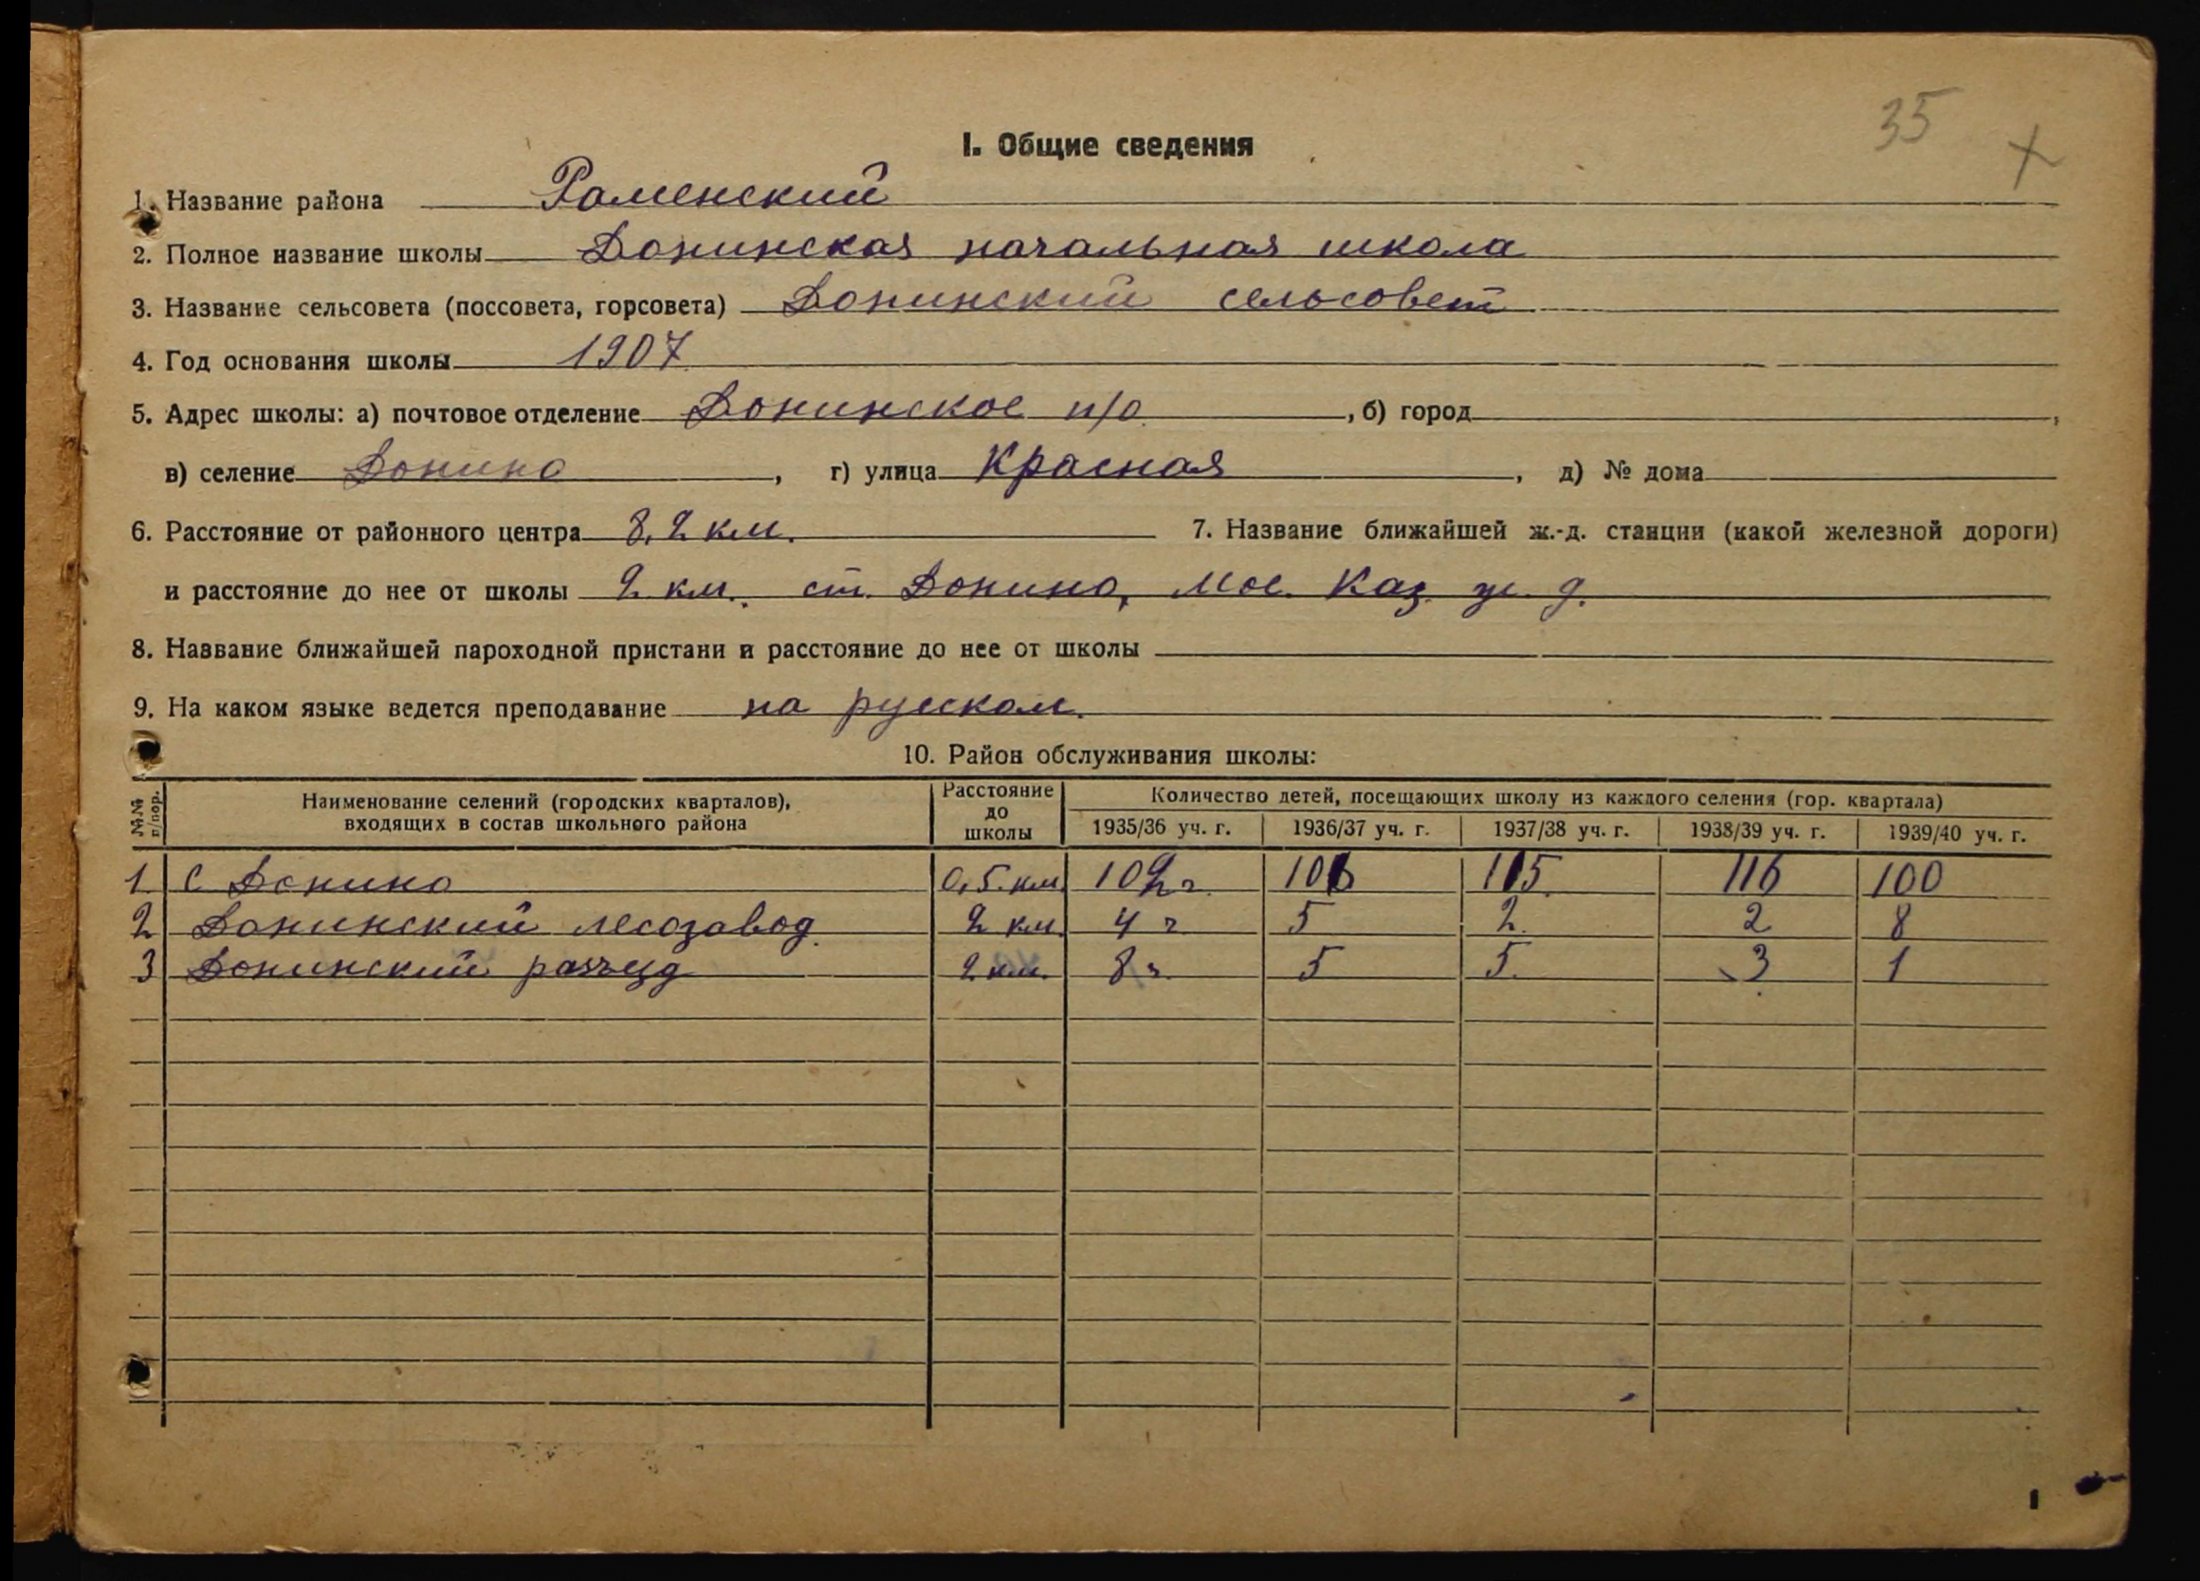 35 +
I. Общие сведения
1. Название района Раменский
2. Полное название школы Донинская начальная школа
3. Название сельсовета (поссовета, горсовета) Донинский сельсовет
4. Год основания школы 1907
5. Адрес школы: а) почтовое отделение Донинское п/о, б) город ,
в) селение Донино, г) улица Красная, д) № дома
6. Расстояние от районного центра 8,2 км. 7. Название ближайшей ж.-д. станции (какой железной дороги)
и расстояние до нее от школы 2 км. ст. Донино, Мос. Каз. ж. д.
8. Название ближайшей пароходной пристани и расстояние до нее от школы
9. На каком языке ведется преподавание на русском.
10. Район обслуживания школы:
№№ п/пор. Наименование селений (городских кварталов), входящих в состав школьного района Расстояние до школы Количество детей, посещающих школу из каждого селения (гор. квартала)
1935/36 уч. г. 1936/37 уч. г. 1937/38 уч. г. 1938/39 уч. г. 1939/40 уч. г.
1 с Донино 0,5 км. 102 ч. 106 115 116 100
2 Донинский лесозавод 2 км. 4 ч 5 2 2 8
3 Донинский разъезд 2 км. 8 ч. 5 5 3 1